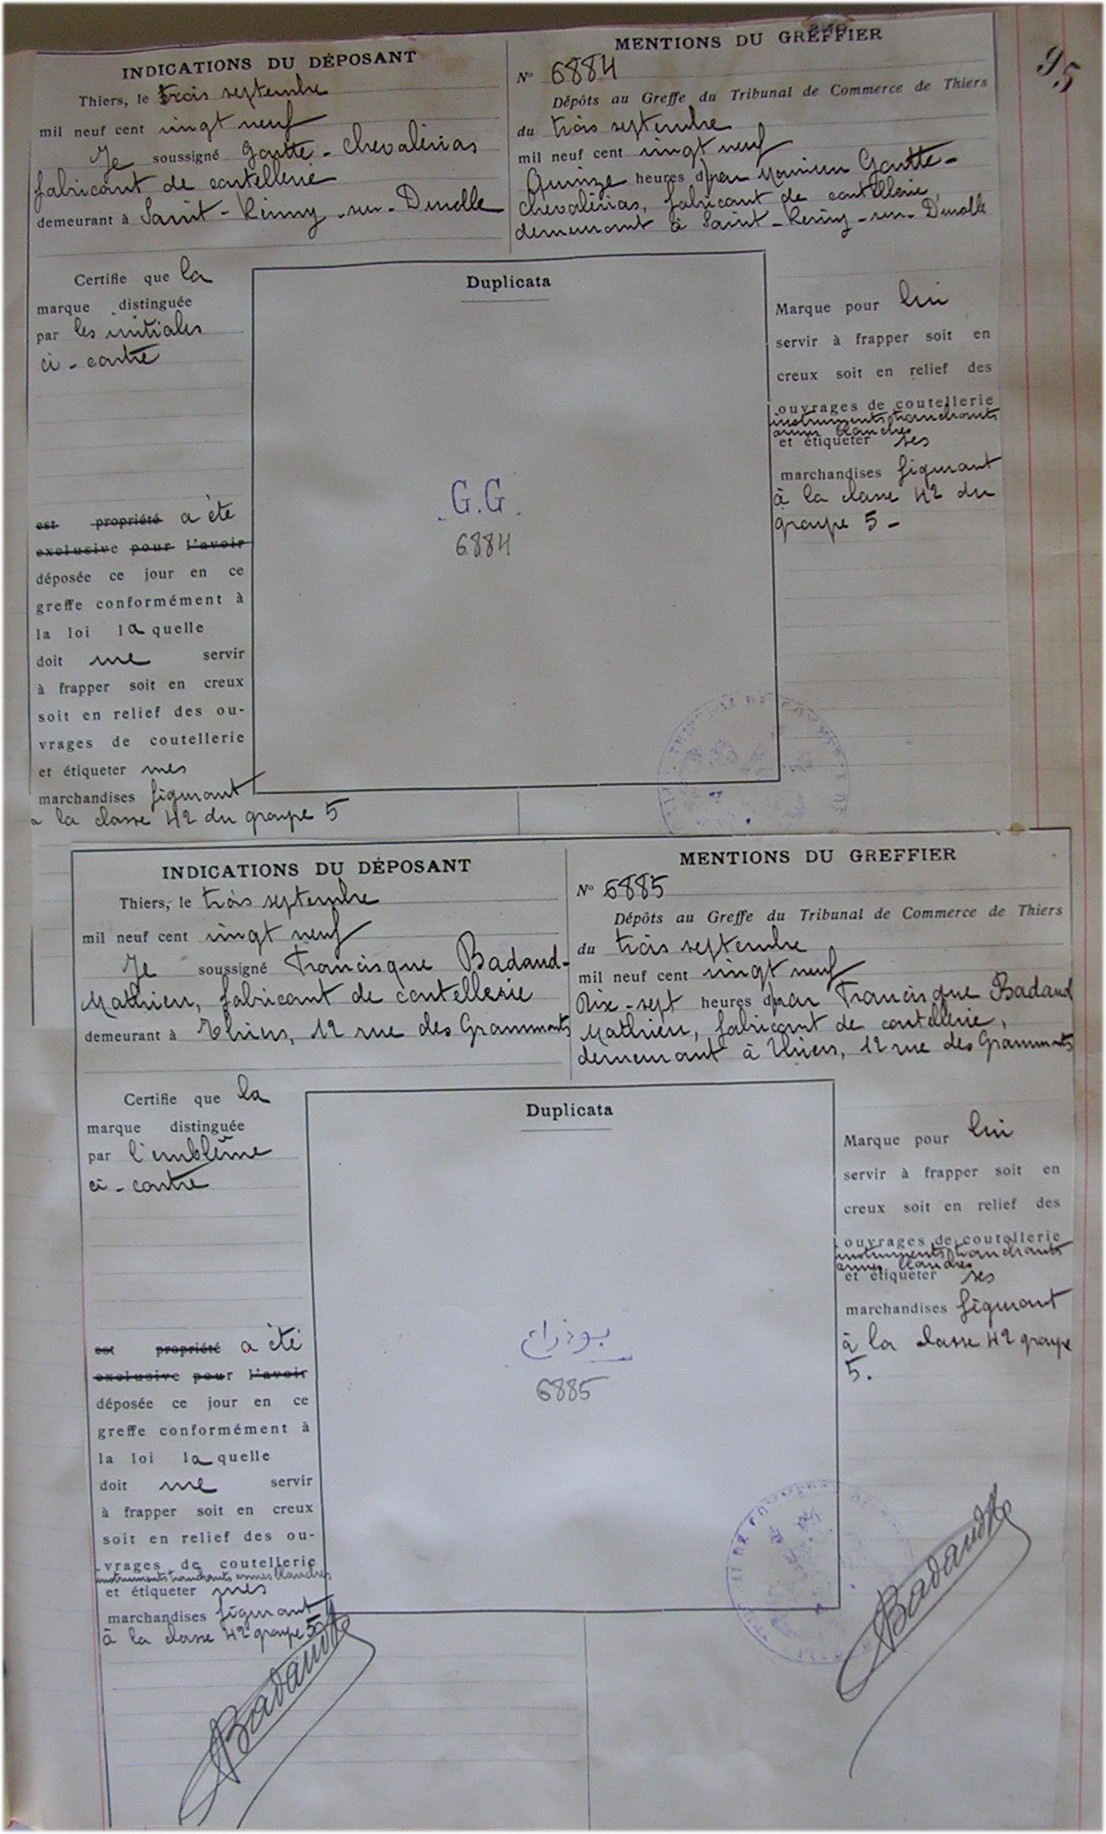 95
INDICATIONS DU DÉPOSANT
Thiers, le trois septembre
mil neuf cent vingt neuf
Je soussigné Goutte-Chevalérias
fabricant de coutellerie
demeurant à Saint-Rémy-sur-Durolle
MENTIONS DU GREFFIER
N° 6884
Dépôts au Greffe du Tribunal de Commerce de Thiers
du trois septembre
mil neuf cent vingt neuf
Quinze heures par Monsieur Goutte-
Chevalérias, fabricant de coutellerie,
demeurant à Saint-Rémy-sur-Durolle
Certifie que la
marque distinguée
par les initiales
ci-contre
est propriété a été
exclusive pour l'avoir
déposée ce jour en ce
greffe conformément à
la loi laquelle
doit me servir
à frapper soit en creux
soit en relief des ou-
vrages de coutellerie
et étiqueter mes
marchandises figurant
à la classe 42 du groupe 5
Duplicata
G.G
6884
Marque pour lui
servir à frapper soit en
creux soit en relief des
ouvrages de coutellerie
instruments tranchants
armes blanches
et étiqueter ses
marchandises figurant
à la classe 42 du
groupe 5-
INDICATIONS DU DÉPOSANT
Thiers, le trois septembre
mil neuf cent vingt neuf
Je soussigné Francisque Badaud-
Mathieu, fabricant de coutellerie
demeurant à Thiers, 12 rue des Grammonts
MENTIONS DU GREFFIER
N° 6885
Dépôts au Greffe du Tribunal de Commerce de Thiers
du trois septembre
mil neuf cent vingt neuf
Dix-sept heures par Francisque Badaud
Mathieu, fabricant de coutellerie,
demeurant à Thiers, 12 rue des Grammonts
Certifie que la
marque distinguée
par l'emblème
ci-contre
est propriété a été
exclusive pour l'avoir
déposée ce jour en ce
greffe conformément à
la loi laquelle
doit me servir
à frapper soit en creux
soit en relief des ou-
vrages de coutellerie
instruments tranchants armes blanches
et étiqueter mes
marchandises figurant
à la classe 42 groupe 5
Duplicata
بوذراع
6885
Marque pour lui
servir à frapper soit en
creux soit en relief des
ouvrages de coutellerie
instruments tranchants
armes blanches
et étiqueter ses
marchandises figurant
à la classe 42 groupe
5.
Badaud
Badaud